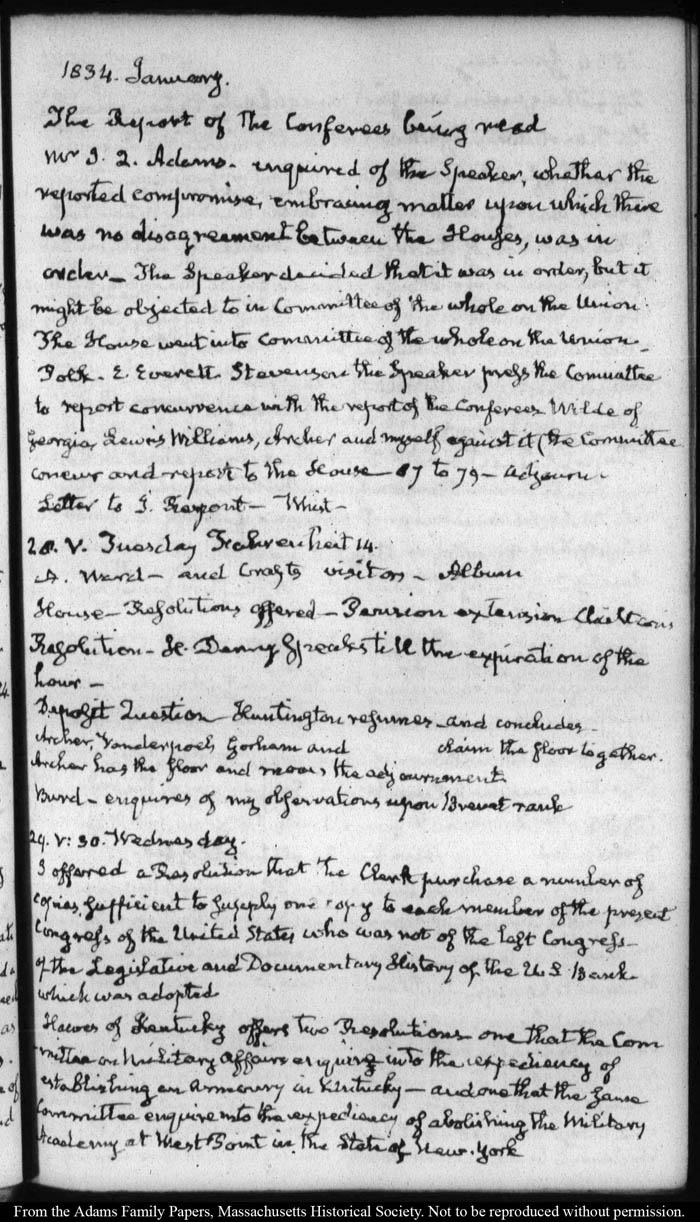 1834. January.
The Report of the Conferees being read
Mr J. Q. Adams. enquired of the Speaker, whether the
reported compromise, embracing matter upon which there
was no disagreement between the Houses, was in
order — The Speaker decided that it was in order, but it
might be objected to in Committee of the whole on the Union.
The House went into Committee of the whole on the Union —
Polk. E. Everett. Stevenson the Speaker press the Committee
to report concurrence with the report of the Conferees Wilde of
Georgia, Lewis Williams, Archer and myself against it (the Committee
concur and report to the House — 7 to 79 — adjourn.
Letter to J. Pierpont — Whist —
28. V. Tuesday Fahrenheit 14.
A. Ward — and visitors — Album
House — Resolutions offered — Pension extension Chilton's
Resolution — H. Denny Speaks till the expiration of the
hour —
Deposit Question Huntington resumes and concludes —
Archer, Vanderpoel, Gorham and claim the floor together.
Archer has the floor and moves the adjournment
Burd — enquires of my observations upon Brevet rank
29. V: 30. Wednesday.
I offered a Resolution that the Clerk purchase a number of
copies, sufficient to supply one copy to each member of the present
Congress of the United States who was not of the last Congress —
of the Legislative and Documentary History of the U.S. Bank —
which was adopted
Hawes of Kentucky offers two Resolutions one that the Com
mittee on Military affairs enquire into the expediency of
establishing an armoury in Kentucky — and one that the same
Committee enquire into the expediency of abolishing the Military
Academy at West Point in the State of New-York
From the Adams Family Papers, Massachusetts Historical Society. Not to be reproduced without permission.